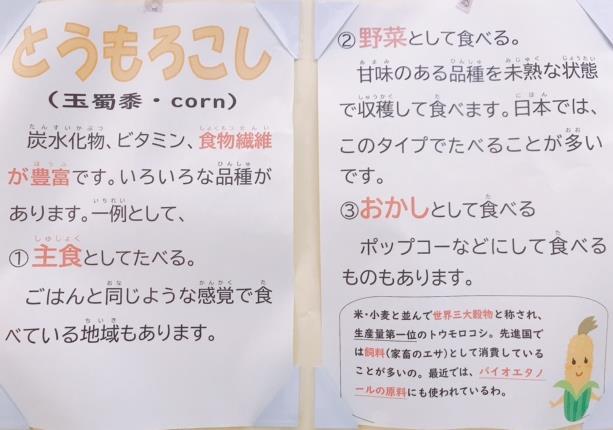 とうもろこし
（玉蜀黍・corn）
炭水化物、ビタミン、食物繊維
が豊富です。いろいろな品種が
あります。一例として、
①主食としてたべる。
ごはんと同じような感覚で食
べている地域もあります。
②野菜として食べる。
甘味のある品種を未熟な状態
で収穫して食べます。日本では、
このタイプでたべることが多い
です。
③おかしとして食べる
ポップコーなどにして食べる
ものもあります。
米・小麦と並んで世界三大穀物と称され、
生産量第一位のトウモロコシ。先進国で
は飼料（家畜のエサ）として消費している
ことが多いの。最近では、バイオエタノ
ールの原料にも使われているわ。